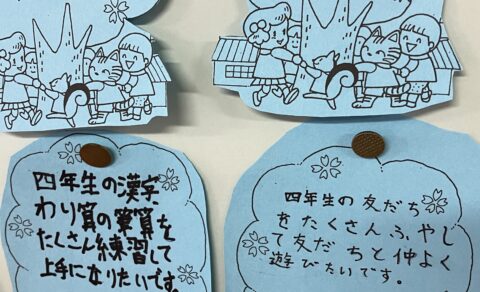 四年生の漢字、
わり算の筆算を
たくさん練習して
上手になりたいです。
四年生の友だち
をたくさんふやし
て友だちと仲よく
遊びたいです。